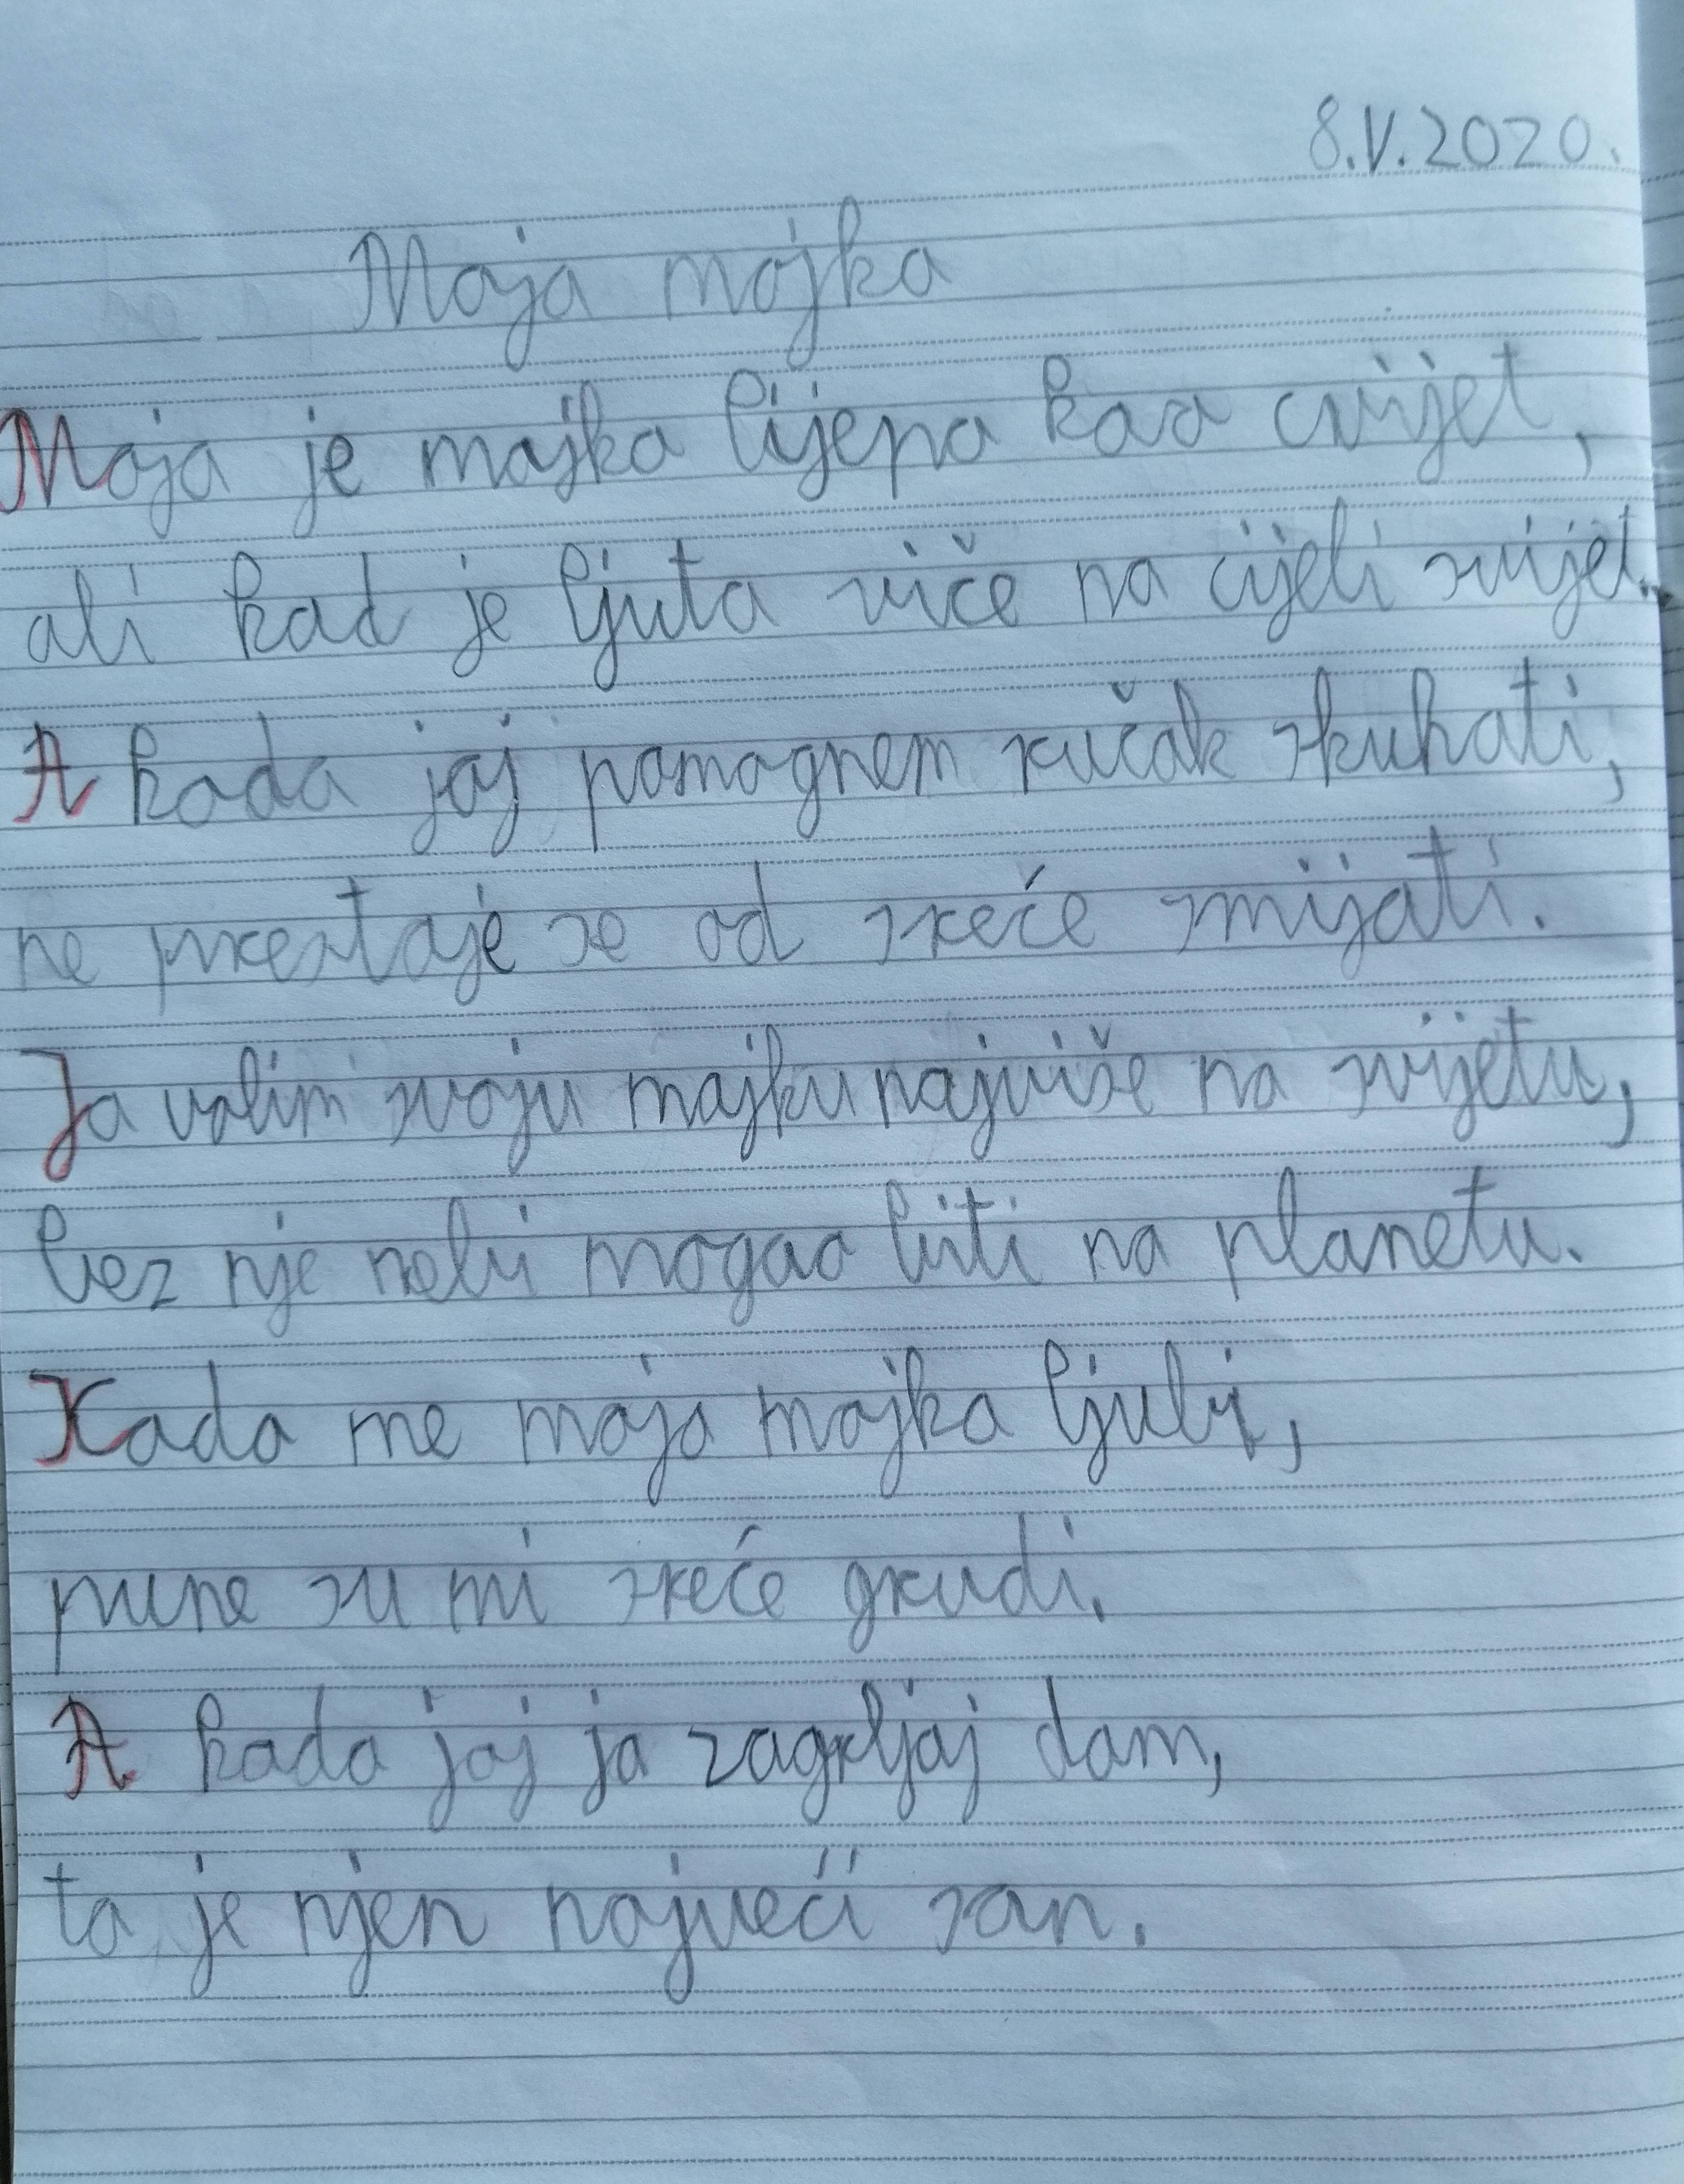 8.V.2020.
Moja majka
Moja je majka lijepa kao cvijet,
ali kad je ljuta viče na cijeli svijet.
A kada joj pomognem ručak skuhati,
ne prestaje se od sreće smijati.
Ja volim svoju majku najviše na svijetu,
bez nje nebi mogao biti na planetu.
Kada me moja majka ljubi,
pune su mi sreće grudi.
A kada joj ja zagrljaj dam,
to je njen najveći san.